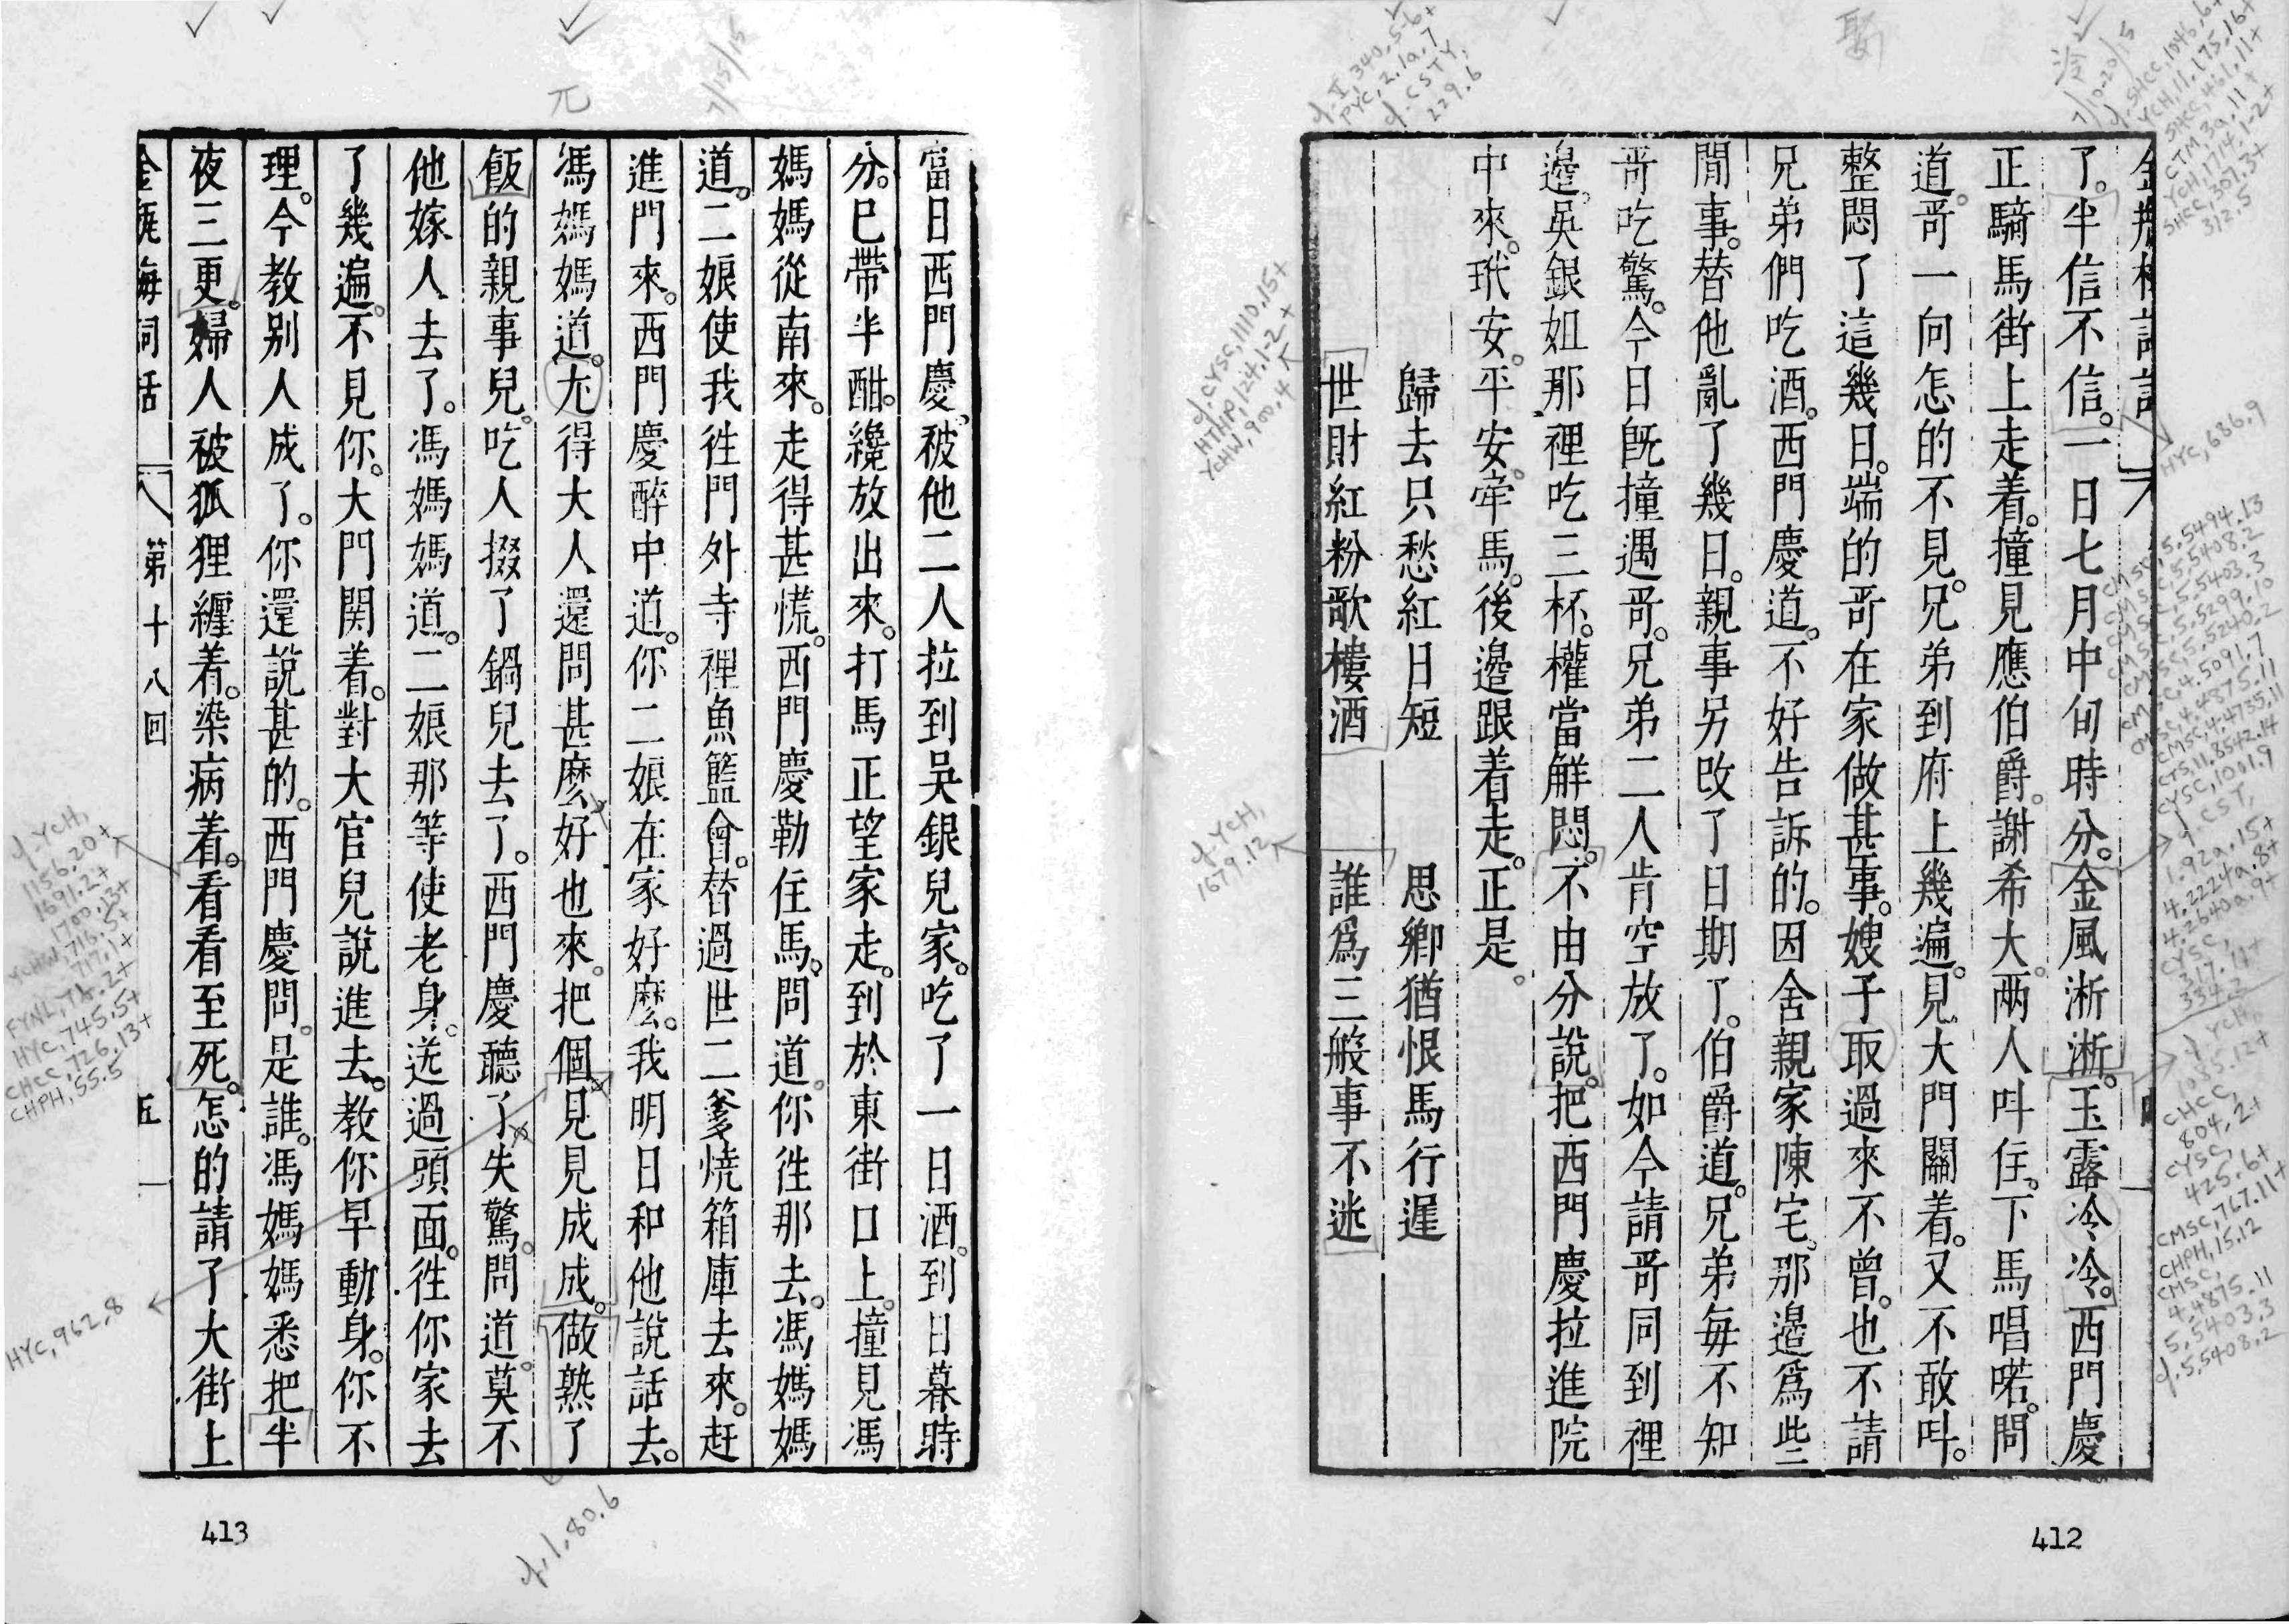 金瓶梅詞話
了。半信不信。一日七月中旬時分。金風淅淅。玉露冷冷。西門慶
正騎馬街上走着。撞見應伯爵。謝希大。两人叫住。下馬唱喏。問
道。哥一向怎的不見。兄弟到府上幾遍。見大門關着。又不敢叫。
整悶了這幾日。端的哥在家做甚事。嫂子取過來不曾。也不請
兄弟們吃酒。西門慶道。不好告訴的。因舍親家陳宅。那邉爲些
閒事。替他亂了幾日。親事另改了日期了。伯爵道。兄弟每不知
哥吃驚。今日旣撞遇哥。兄弟二人肯空放了。如今請哥同到裡
邉。吳銀姐那裡吃三杯。權當觧悶。不由分說。把西門慶拉進院
中來。玳安。平安。牽牽馬。後邉跟着走。正是。
歸去只愁紅日短　思鄉猶恨馬行遲
世財紅粉歌樓酒　誰爲三般事不迯
412
當日西門慶。被他二人拉到吳銀兒家。吃了一日酒。到日暮時
分。巳帶半酣。纔放出來。打馬正望家走。到於東街口上。撞見馮
媽媽從南來。走得甚慌。西門慶勒住馬。問道。你徃那去。馮媽媽
道。二娘使我徃門外寺裡魚籃會。替過世二爹燒箱庫去來。赶
進門來。西門慶醉中道。你二娘在家好麽。我明日和他說話去。
馮媽媽道。尢得大人還問甚麽好也來。把個見見成成。做熟了
飯的親事兒。吃人掇了鍋兒去了。西門慶聽了失驚。問道。莫不
他嫁人去了。馮媽媽道。二娘那等使老身。送過頭面。徃你家去
了幾遍。不見你。大門関着。對大官兒說進去。教你早動身。你不
理。今教别人成了。你還說甚的。西門慶問。是誰。馮媽媽悉把半
夜三更。婦人被狐狸纒着。染病着。看看至死。怎的請了大街上
金瓶梅詞話　第十八回　五
413
元
7/15/15
冷
HYC, 686.9
HYC, 962.8
cf. 1.80.6
cf. YCH, 1679.12
cf. CYSC, 1110.15+
HTHP, 124.1-2+
YCHW, 900.4
cf. I, 340, 5-6+
PYC, 2.1a.7
cf. CSTY, 229.6
CMSC, 5.5494.13
CMSC, 5.5408.2
CMSC, 5.5403.3
CMSC, 5.5299.10
CMSC, 5.5240.2
CMSC, 4.5091.7
CMSC, 4.4875.11
CMSC, 4.4735.11
CTS, 11.8542.14
CYSC, 1001.9
HYC, 745.5+
CHCC, 726.13+
CHPH, 55.5